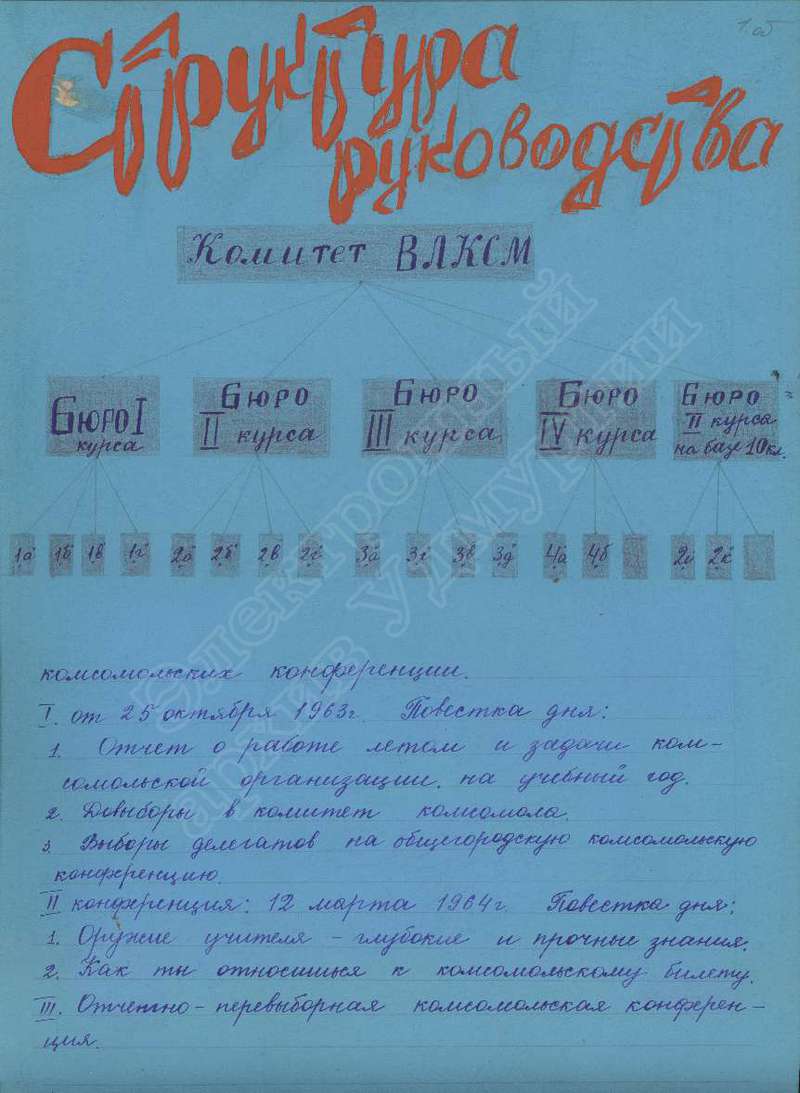 1 об
Структура
руководства
Комитет ВЛКСМ
Бюро I
курса
Бюро
II курса
Бюро
III курса
Бюро
IV курса
Бюро
II курса
на базе 10 кл.
1а 1б 1в 1г 2а 2б 2в 2г 3а 3г 3в 3д 4а 4б 2и 2к
комсомольских конференции.
I. от 25 октября 1963 г. Повестка дня:
1. Отчет о работе летом и задачи ком-
сомольской организации. на учебный год.
2. Довыборы в комитет комсомола.
3. Выборы делегатов на общегородскую комсомольскую
конференцию.
II конференция: 12 марта 1964 г. Повестка дня:
1. Оружие учителя - глубокие и прочные знания.
2. Как ты относишься к комсомольскому билету.
III. Отчетно-перевыборная комсомольская конферен-
ция.
Электронный
архив Удмуртии